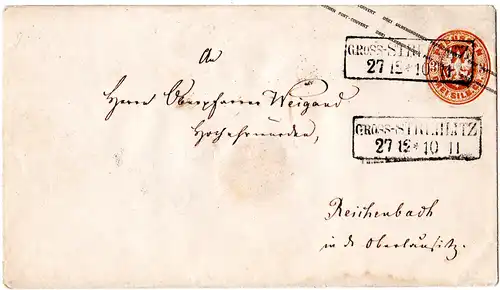 GROSS-STREHLITZ
27 12 * 10 11
An
Herrn Oberpfarrer Weigand
Hochehrwürden,
GROSS-STREHLITZ
27 12 * 10 11
Reichenbach
in der Oberlausitz.